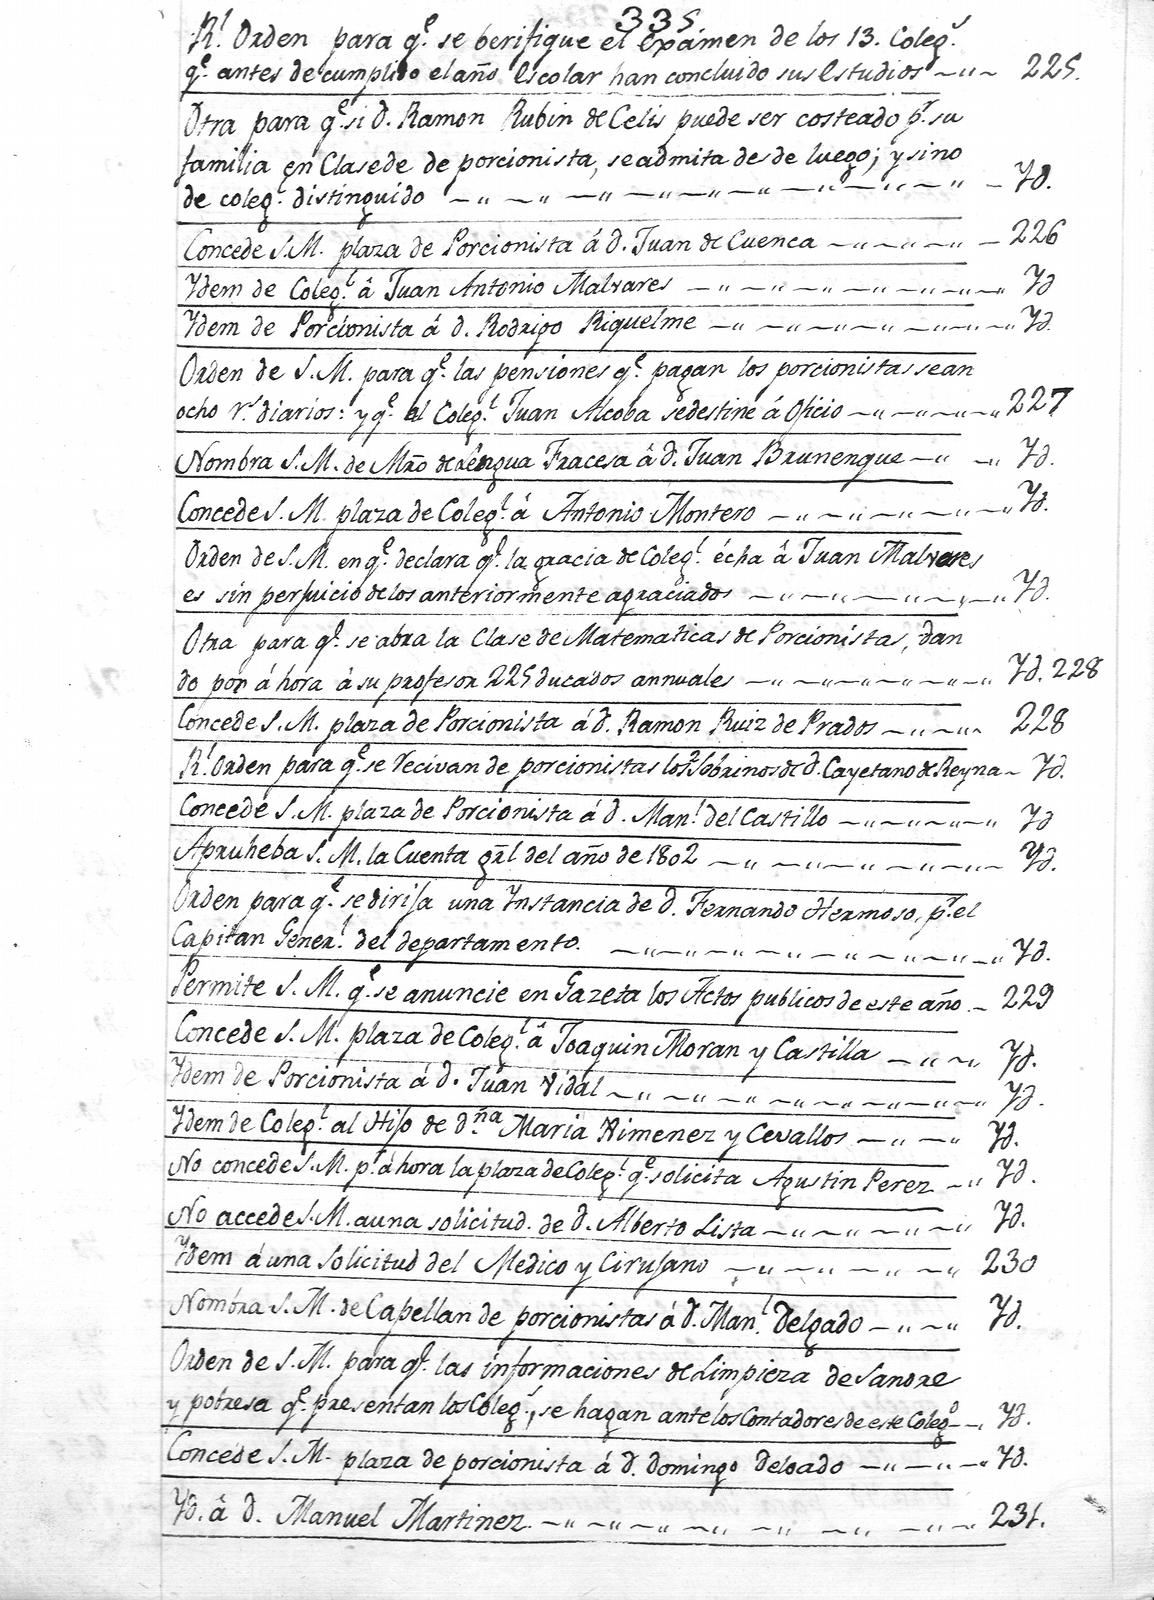 335
Rˡ Orden para q.ᵉ se berifique el Exámen de los 13. Coleg.ˢ
q.ᵉ antes de cumplido el año Escolar han concluido sus Estudios ~ " ~ 225.
Otra para q.ᵉ si D. Ramon Rubin de Celis puede ser costeado p.ʳ su
familia en Clase de de porcionista, se admita desde luego; y sino
de coleg.ˡ distinguido ~ " ~ " ~ " ~ " ~ " ~ " ~ Yd.
Concede S.M. plaza de Porcionista á D. Juan de Cuenca ~ " ~ " ~ 226
Ydem de Coleg.ˡ â Juan Antonio Malvares ~ " ~ " ~ " ~ " Yd
Ydem de Porcionista á D. Rodrigo Riquelme ~ " ~ " ~ " ~ " Yd.
Orden de S.M. para q.ᵉ las pensiones q.ᵉ pagan los porcionistas sean
ocho r.ˢ diarios: y q.ᵉ el Coleg.ˡ Juan Alcoba se destine á Oficio ~ " ~ " ~ " 227
Nombra S.M. de Mr̃o de Lengua Fracesa â D. Juan Brunenque ~ " ~ " Yd.
Concede S.M. plaza de Coleg.ˡ á Antonio Montero ~ " ~ " ~ " ~ " Yd.
Orden de S.M. en q.ᵉ declara q.ᵉ la gracia de Coleg.ˡ écha â Juan Malvares
es sin perjuicio de los anteriormente agraciados ~ " ~ " ~ " ~ " Yd.
Otra para q.ᵉ se abra la Clase de Matematicas de Porcionistas, dan
do por á hora à su profesor 225 ducados annuales ~ " ~ " ~ " ~ " Yd. 228
Concede S.M. plaza de Porcionista á D. Ramon Ruiz de Prados ~ " ~ " 228
Rˡ Orden para q.ᵉ se recivan de porcionistas los 2 Sobrinos de D. Cayetano de Reyna ~ Yd.
Concede S.M. plaza de Porcionista á D. Man.ˡ del Castillo ~ " ~ " ~ " Yd
Aprueba S.M. la Cuenta gr̃l del año de 1802 ~ " ~ " ~ " ~ " Yd.
Orden para q.ᵉ se dirija una Ynstancia de D. Fernando Hermoso, p.ʳ el
Capitan Gener.ˡ del departamento. ~ " ~ " ~ " ~ " ~ " Yd.
Permite S.M. q.ᵉ se anuncie en Gazeta los Actos publicos de este año ~ 229
Concede S.M. plaza de Coleg.ˡ â Joaquin Moran y Castilla ~ " ~ Yd.
Ydem de Porcionista á D. Juan Vidal ~ " ~ " ~ " ~ " ~ " Yd.
Ydem de Coleg.ˡ al Hijo de D.ñᵃ Maria Ximenez y Cevallos ~ " ~ " Yd.
No concede S.M. p.ʳ á hora la plaza de Coleg.ˡ q.ᵉ solicita Agustin Perez ~ " Yd.
No accede S.M. a una solicitud. de D. Alberto Lista ~ " ~ " ~ " Yd.
Ydem á una Solicitud del Medico y Cirujano ~ " ~ " ~ " 230
Nombra S.M. de Capellan de porcionistas á D. Man.ˡ Delgado ~ " ~ " Yd.
Orden de S.M. para q.ᵉ las informaciones de Limpieza de Sangre
y pobresa q.ᵉ presentan los Coleg.ˢ, se hagan ante los Contadores de este Coleg.º ~ Yd.
Concede S.M. plaza de porcionista á D. Domingo Delgado ~ " ~ " Yd.
Yd. â D. Manuel Martinez ~ " ~ " ~ " ~ " ~ " ~ " 231.